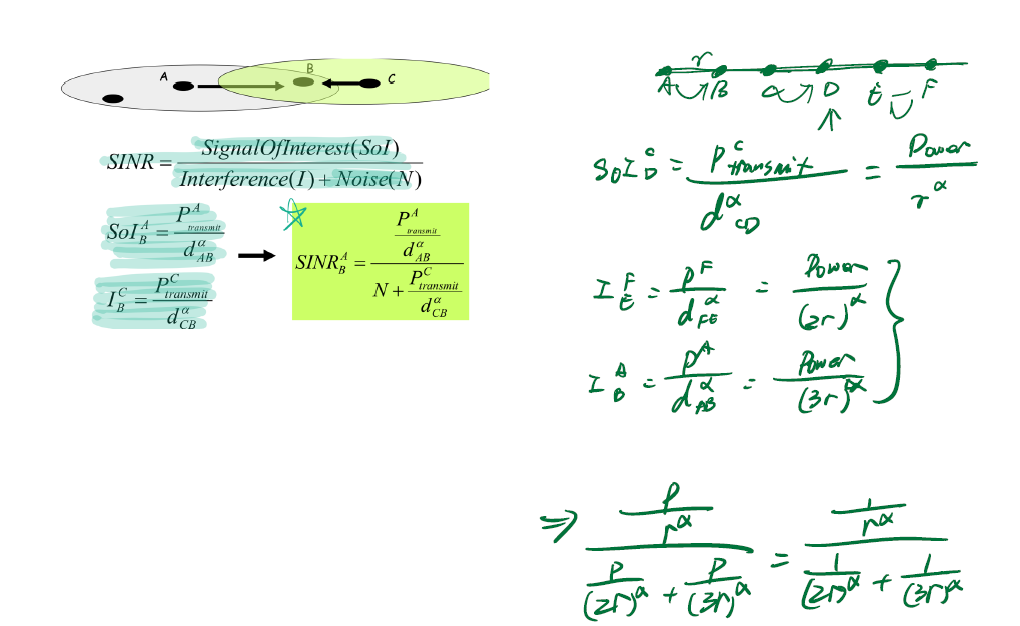 A B C
SINR = SignalOfInterest(SoI) / Interference(I) + Noise(N)
SoI_B^A = P_transmit^A / d_AB^α
I_B^C = P_transmit^C / d_CB^α
SINR_B^A = (P_transmit^A / d_AB^α) / (N + P_transmit^C / d_CB^α)
r
A B D E F
SoI_D^C = P_transmit^C / d_CD^α = Power / r^α
I_E^F = P^F / d_FE^α = Power / (2r)^α
I_B^A = P^A / d_AB^α = Power / (3r)^α
⇒ (P / r^α) / (P / (2r)^α + P / (3r)^α) = (1 / r^α) / (1 / (2r)^α + 1 / (3r)^α)